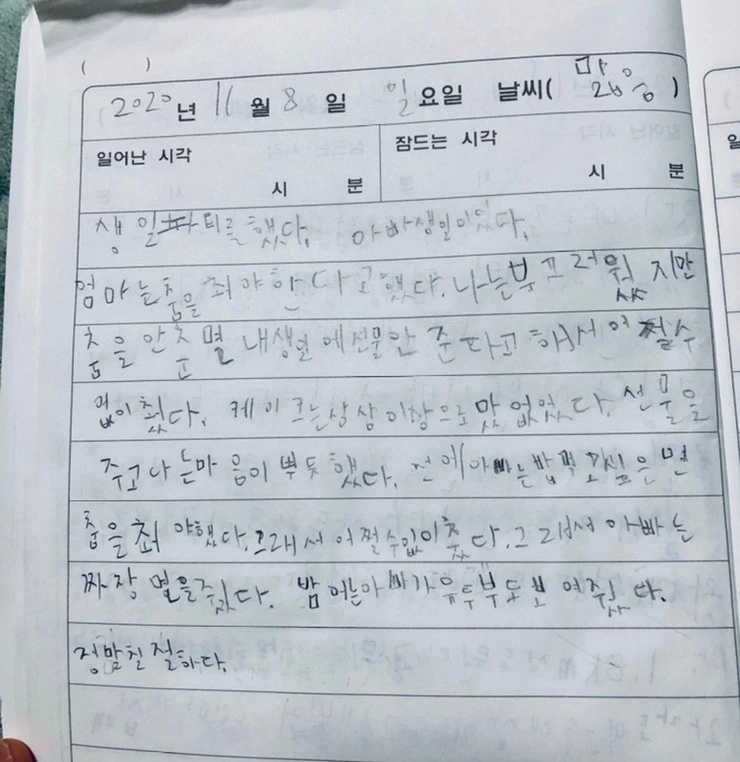 ( )
2020년 11월 8일 일요일 날씨( 맑음 )
일어난 시각 잠드는 시각
시 분 시 분
생일파티를했다. 아빠생일이었다.
엄마는춤을 춰야한다고했다. 나는부끄러웠지만
춤을안추면 내생일에선물안준다고해서어쩔수
없이췄다. 케이크는상상이상으로맛없었다. 선물을
주고나는마음이뿌듯했다. 전에아빠는밥먹고싶은면
춤을춰야했다.그래서어쩔수없이춨다.그래서아빠는
짜장면을줬다. 밤에는아빠가유투부도보여줬다.
정말친절하다.